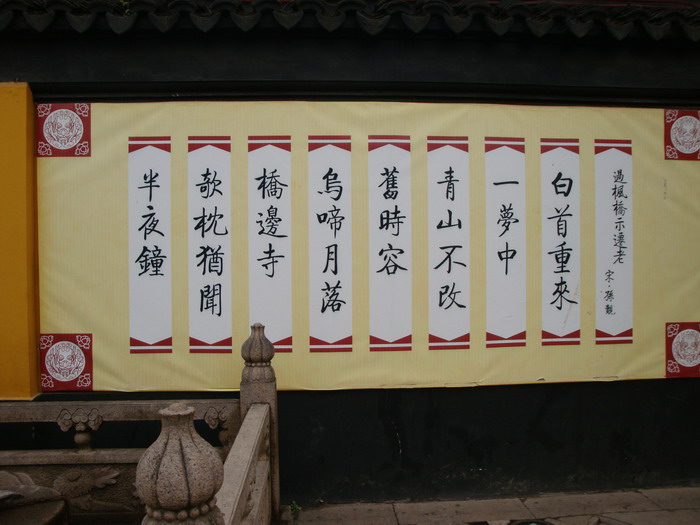 過楓橋示遷老
宋·孫覿
白首重來
一夢中
青山不改
舊時容
烏啼月落
橋邊寺
欹枕猶聞
半夜鐘